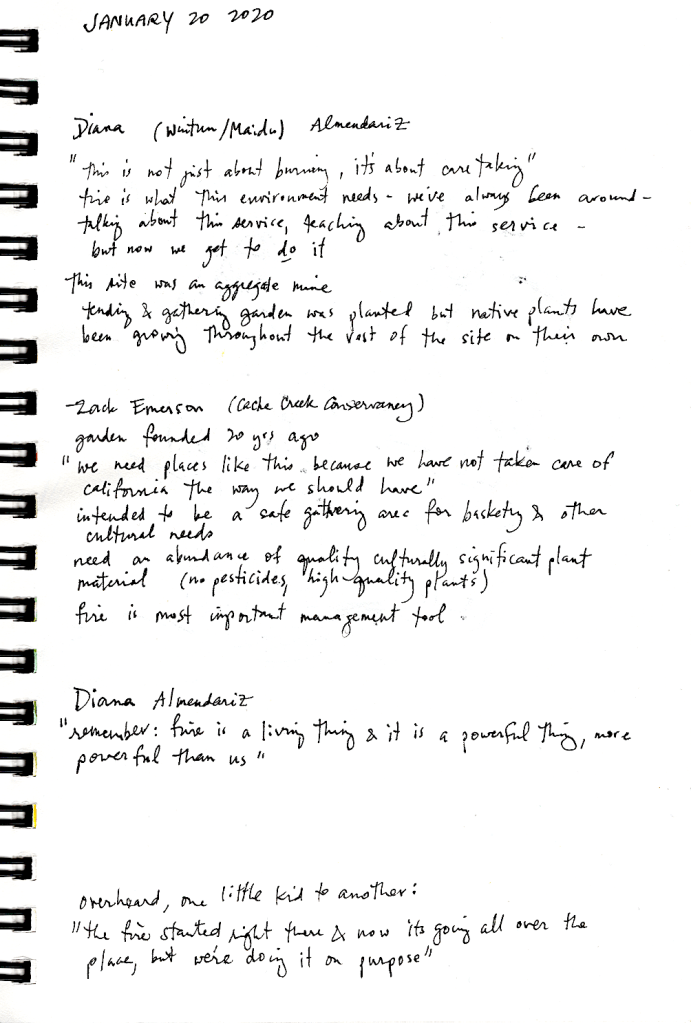 JANUARY 20 2020
Diana (Wintun/Maidu) Almendariz
"this is not just about burning, it's about caretaking"
fire is what this environment needs - we've always been around -
talking about this service, teaching about this service -
but now we get to do it
this site was an aggregate mine
tending & gathering garden was planted but native plants have
been growing throughout the rest of the site on their own
-Zack Emerson (Cache Creek Conservancy)
garden founded 20 yrs ago
"we need places like this because we have not taken care of
california the way we should have"
intended to be a safe gathering area for basketry & other
cultural needs
need an abundance of quality culturally significant plant
material (no pesticides, high-quality plants)
fire is most important management tool.
Diana Almendariz
"remember: fire is a living thing & it is a powerful thing, more
powerful than us"
overheard, one little kid to another:
"the fire started right there & now its going all over the
place, but we're doing it on purpose"